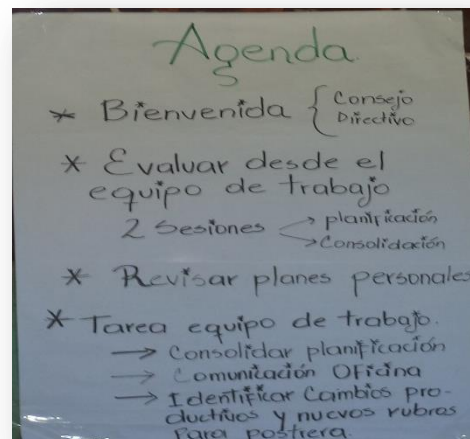 Agenda
* Bienvenida { Consejo
Directivo
* Evaluar desde el
equipo de trabajo
2 Sesiones → planificación
→ Consolidación
* Revisar planes personales
* Tarea equipo de trabajo.
→ Consolidar planificación
→ Comunicación Oficina
→ Identificar Cambios pro-
ductivos y nuevos rubros
Para postrera.